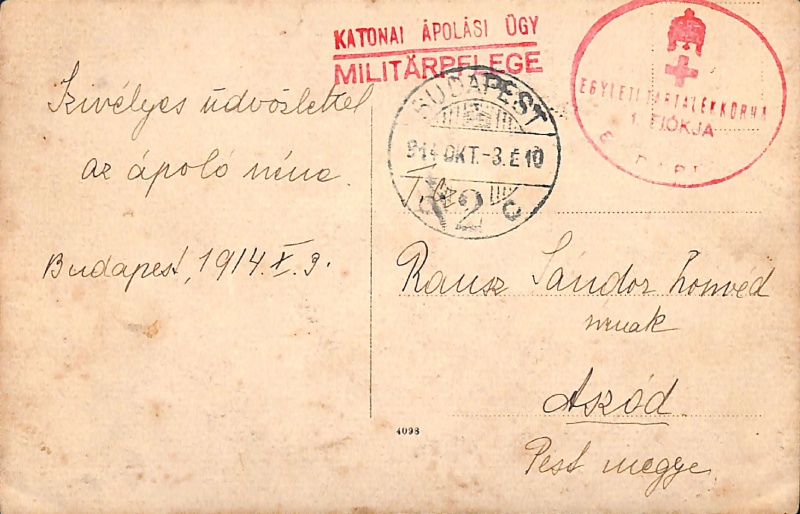 KATONAI ÁPOLÁSI ÜGY
MILITÄRPFLEGE
EGYLETI TARTALÉKKÓRHÁ
1. FIÓKJA
BUDAPEST
914 OKT.-3.É10
72
Szivélyes üdvözlettel
az ápoló néne.
Budapest, 1914.X.3.
Rausz Sándor honvéd
urnak
Aszód
Pest megye
4098